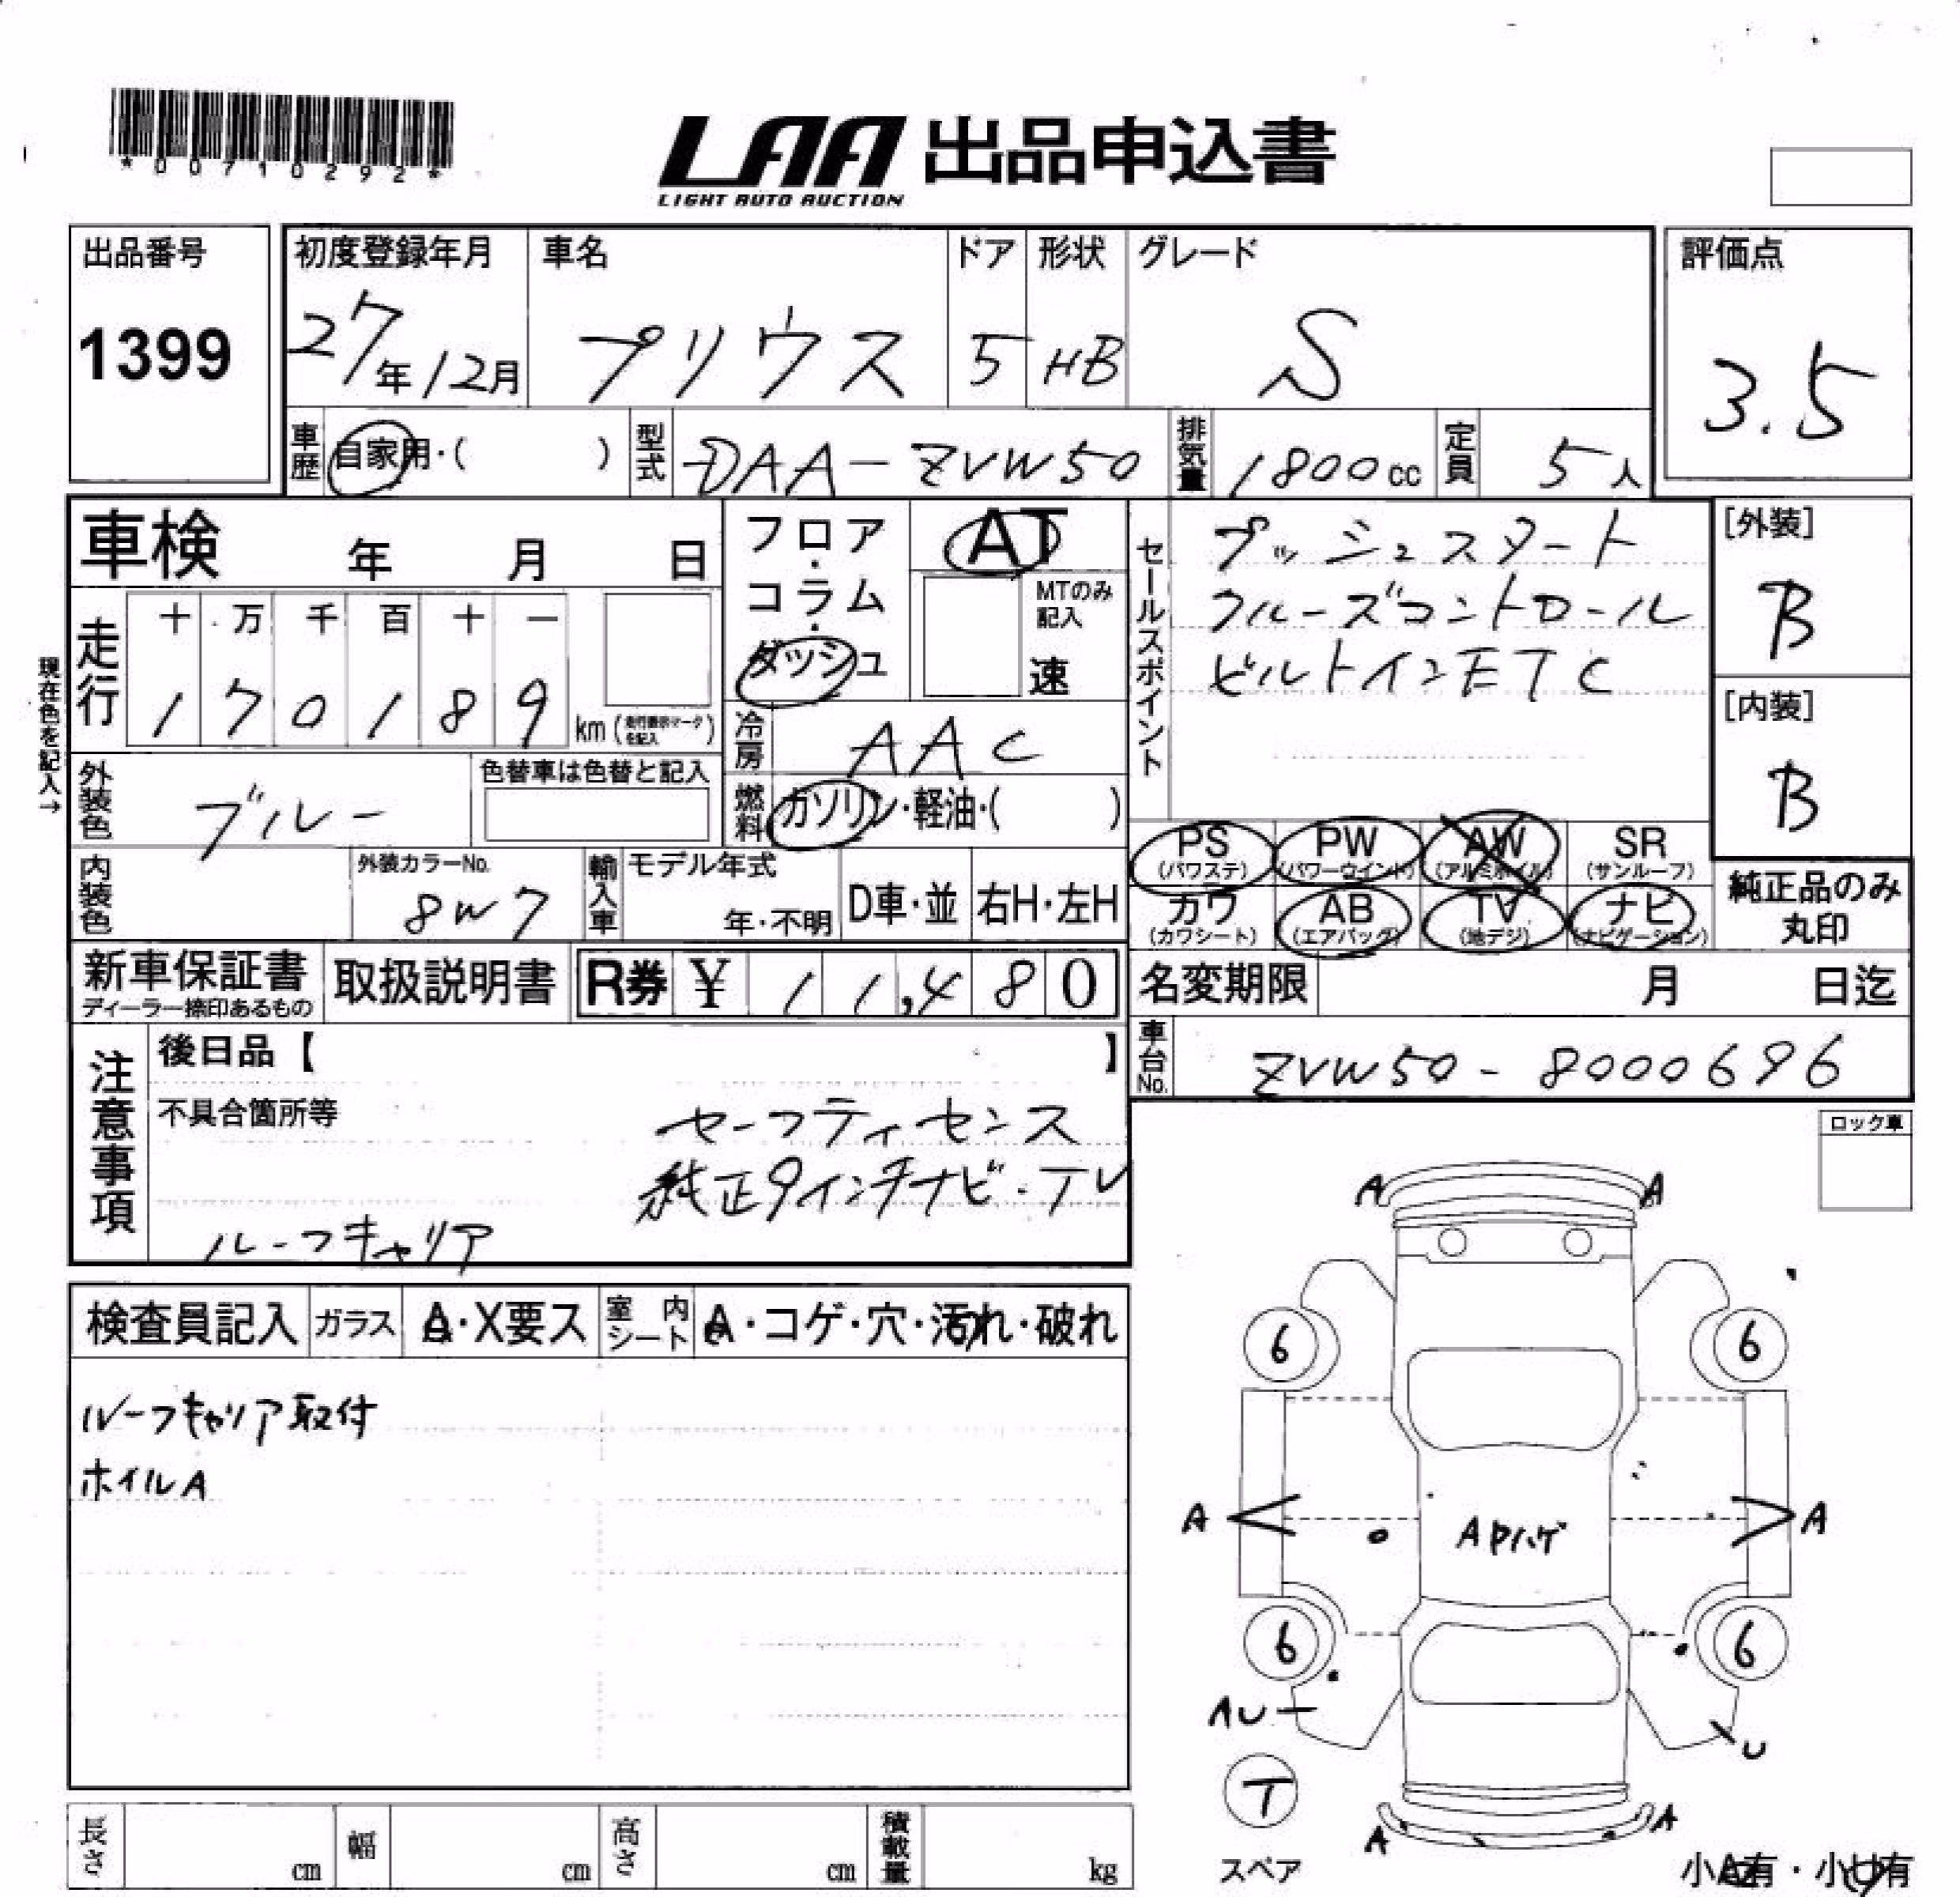 *00710292*
LAA 出品申込書
LIGHT AUTO AUCTION
出品番号
1399
初度登録年月
27年12月
車名
プリウス
ドア
5
形状
HB
グレード
S
評価点
3.5
車歴
自家用・( )
型式
DAA-ZVW50
排気量
1800cc
定員
5人
車検 年 月 日
フロア・コラム・ダッシュ
AT
MTのみ記入
速
セールスポイント
プッシュスタート
クルーズコントロール
ビルトインETC
[外装]
B
[内装]
B
現在色を記入→
走行
十 万 千 百 十 一
1 7 0 1 8 9 km (走行表示マークを記入)
冷房
AAC
外装色
ブルー
色替車は色替と記入
燃料
ガソリン・軽油・( )
PS (パワステ)
PW (パワーウインド)
AW (アルミホイル)
SR (サンルーフ)
カワ (カワシート)
AB (エアバッグ)
TV (地デジ)
ナビ (ナビゲーション)
純正品のみ丸印
内装色
外装カラーNo.
8W7
輸入車
モデル年式
年・不明
D車・並
右H・左H
新車保証書
ディーラー捺印あるもの
取扱説明書
R券 ¥ 11,480
名変期限 月 日迄
車台No.
ZVW50-8000696
注意事項
後日品【 】
不具合箇所等
セーフティセンス
純正9インチナビ・TV
ルーフキャリア
ロック車
検査員記入
ガラス
A・X要ス
室内シート
A・コゲ・穴・汚れ・破れ
ルーフキャリア取付
ホイルA
A A
6 6
A A
APハゲ
6 6
AU
U
T
スペア
A A
小A有・小U有
長さ cm
幅 cm
高さ cm
積載量 kg